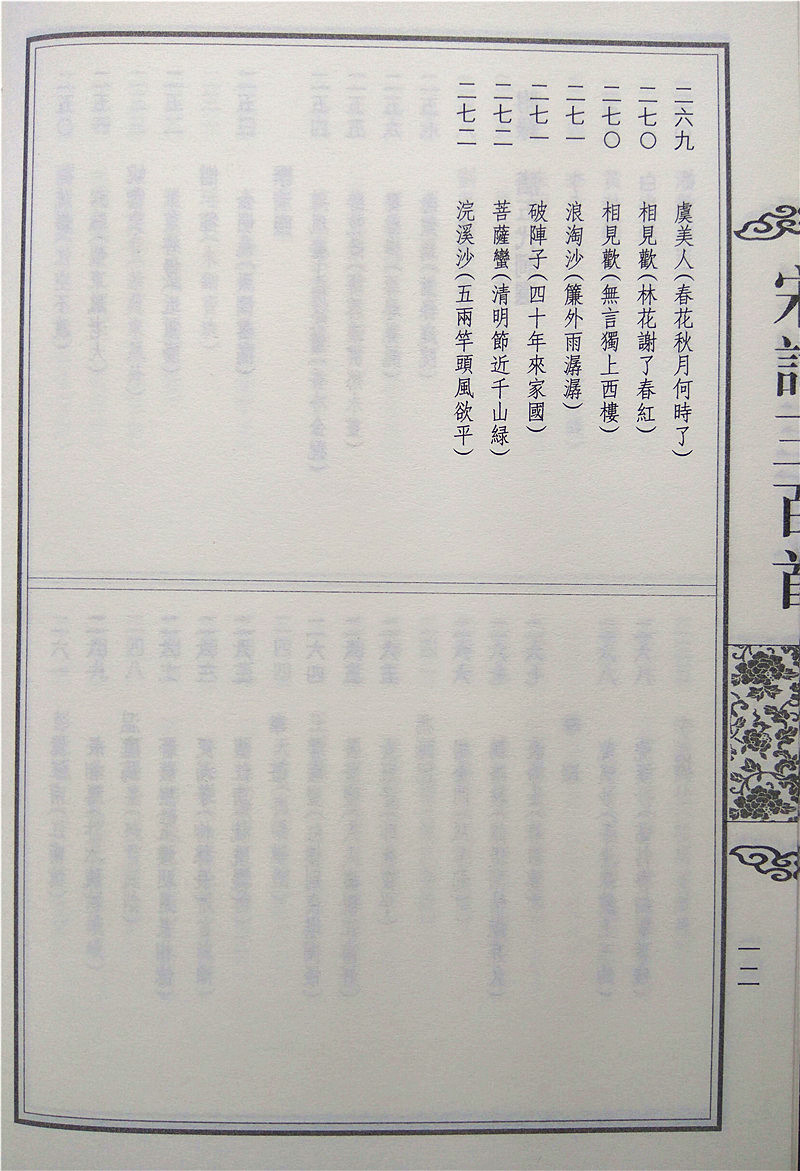 宋詞三百首
一二
二六九 虞美人(春花秋月何時了)
二七〇 相見歡(林花謝了春紅)
二七〇 相見歡(無言獨上西樓)
二七一 浪淘沙(簾外雨潺潺)
二七一 破陣子(四十年來家國)
二七二 菩薩蠻(清明節近千山緑)
二七二 浣溪沙(五兩竿頭風欲平)